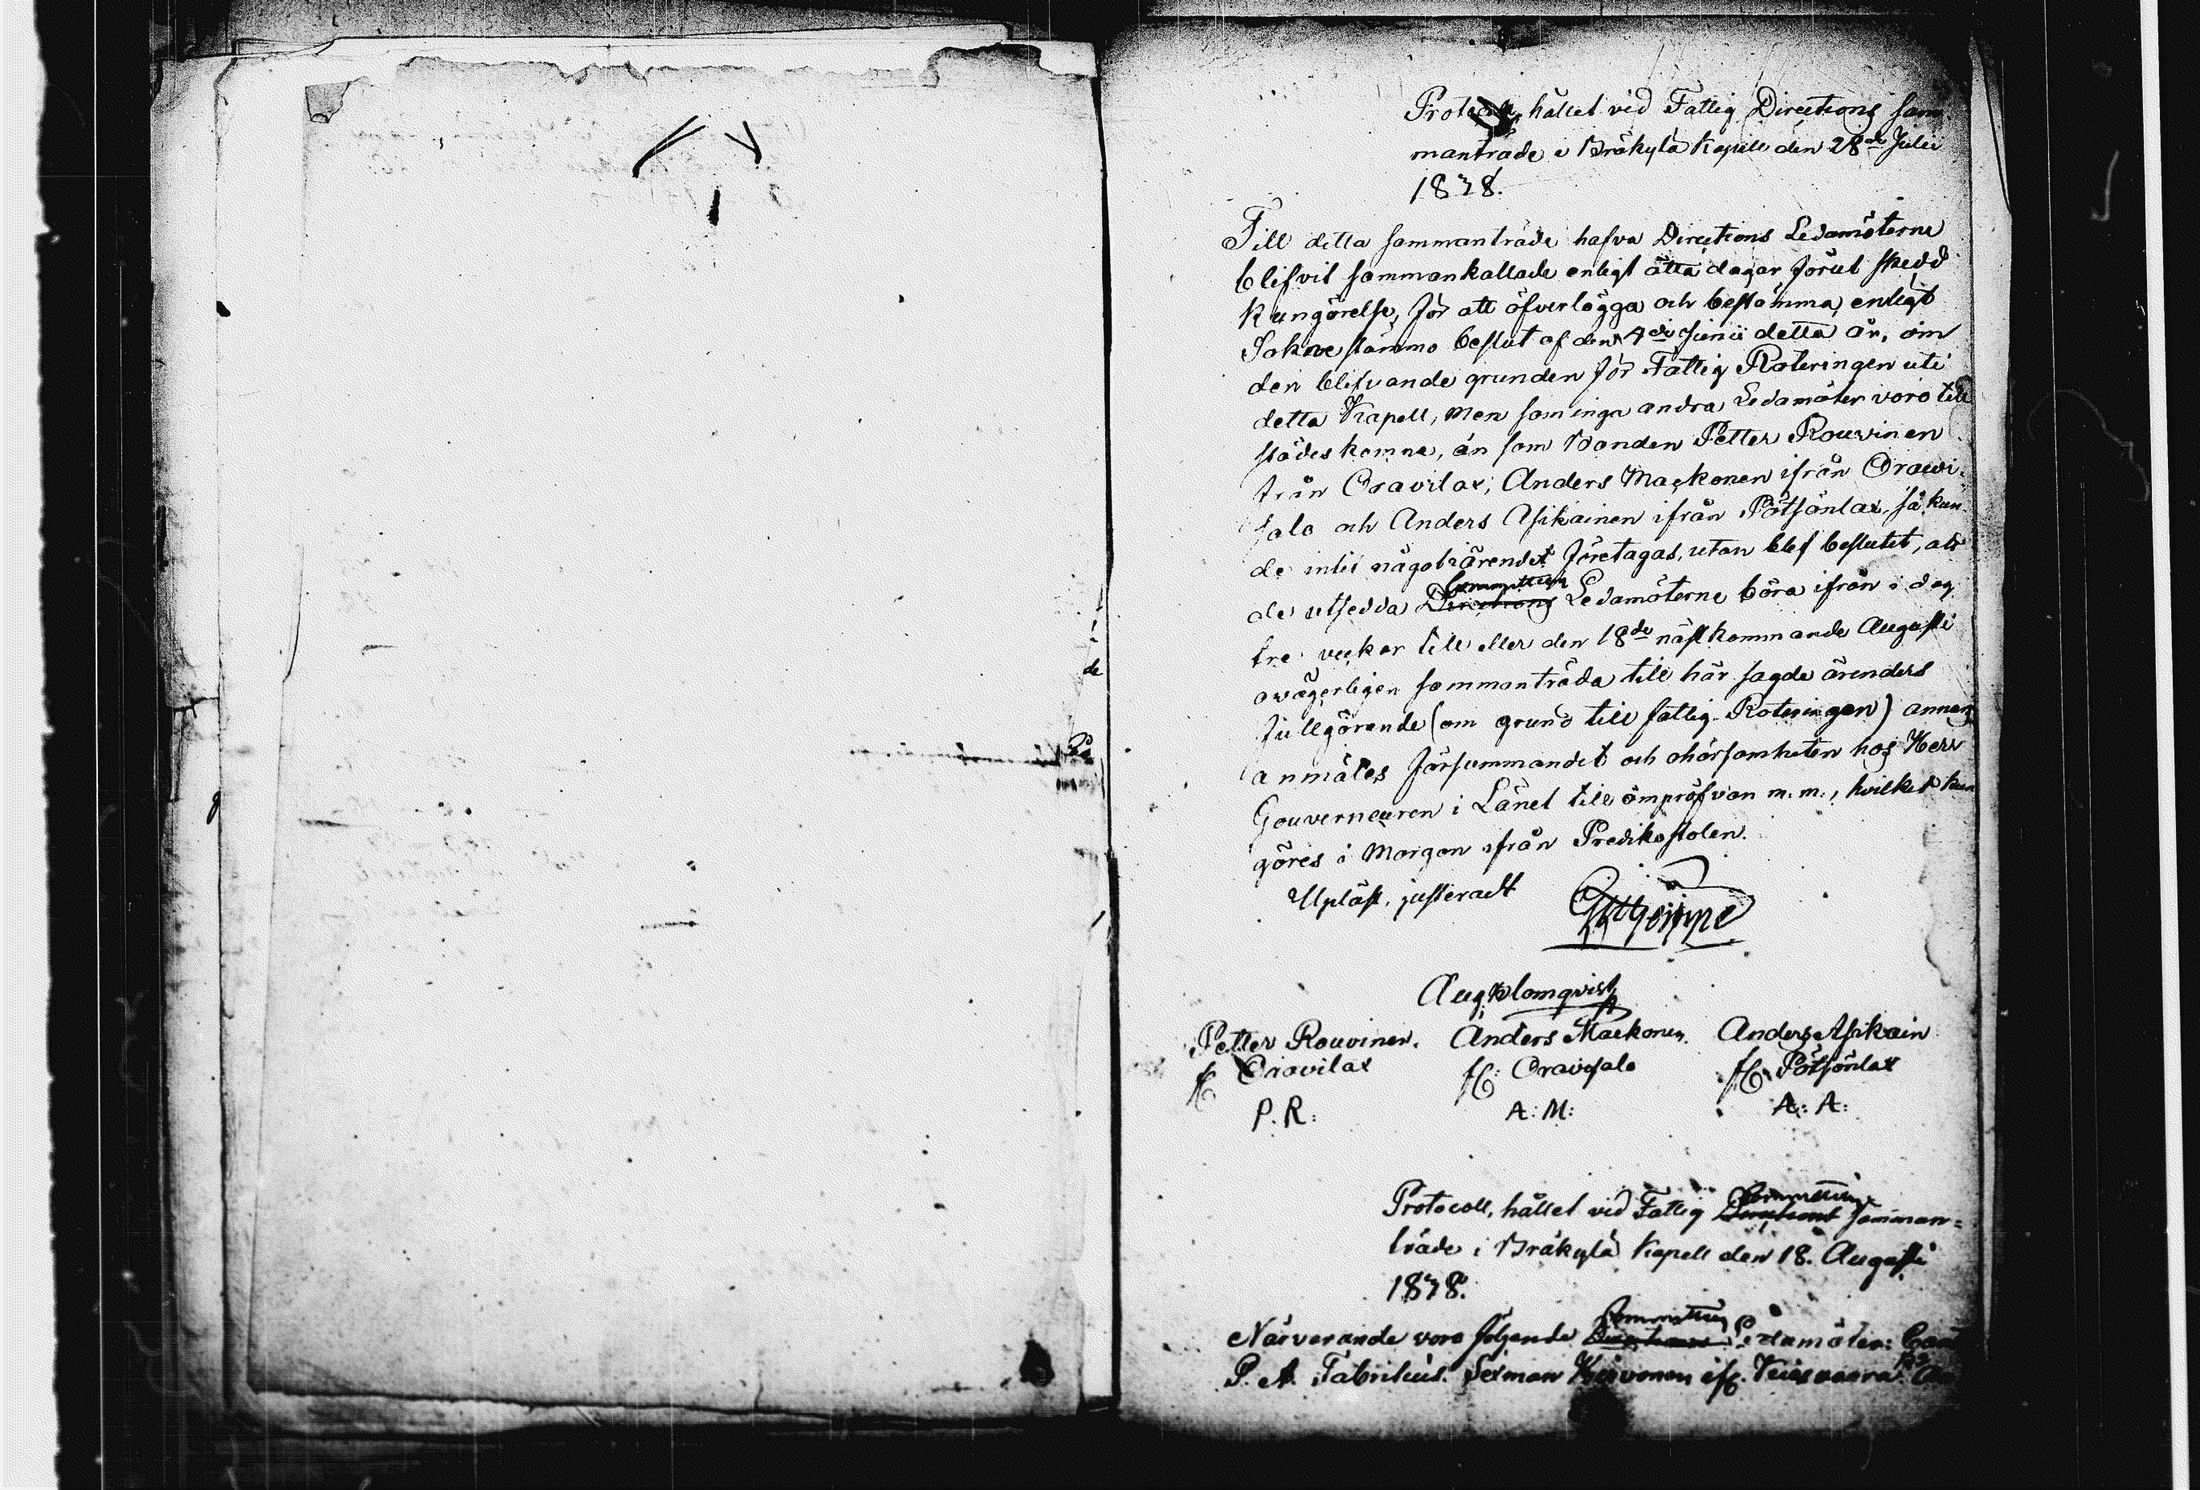 Protocoll, hållet vid Fattig Directions sam-
manträde i Bräkylä Kapell den 28de Julii
1838.
Till detta sammanträde hafva Directions Ledamöterne
blifvit sammankallade enligt åtta dagar förut skedd
kungörelse, för att öfverlägga och bestämma, enligt
Sokne stämmo beslut af den 4de Junii detta år, om
den blifvande grunden för Fattig Roteringen uti
detta Kapell, men som inga andra Ledamöter voro till
städes komne, än som Bonden Petter Rouvinen
från Oravilax, Anders Maekonen ifrån Orawi-
salo och Anders Asikainen ifrån Pötsönlax, så kun-
de intet något ärendet företagas, utan blef beslutet, att
de utsedda Directions Committeen Ledamöterne böra ifrån i dag
tre veckor till eller den 18de nästkommande Augusti
owägerligen sammanträda till här sagde ärendets
fullgörande (om grund till fattig Roteringen) annars
anmäles försummandet och ohörsamheten hos Herr
Gouverneuren i Länet till ompröfvan m. m., hvilket kun
göres i Morgon ifrån Predikostolen.
Upläst, justeradt
Aug Blomqvist
Petter Rouvinen. Anders Maekonen. Anders Asikain
fr. Oravilax fr: Oravisalo fr. Pötsönlax
P. R: A: M: A: A:
Protocoll, hållet vid Fattig Directions Committeens samman=
träde i Bräkylä Kapell den 18. Augusti
1838.
Närvarande voro följande Directions Committeens Ledamöter:
P. A. Fabritius. Sexman Hirvonen ifr.